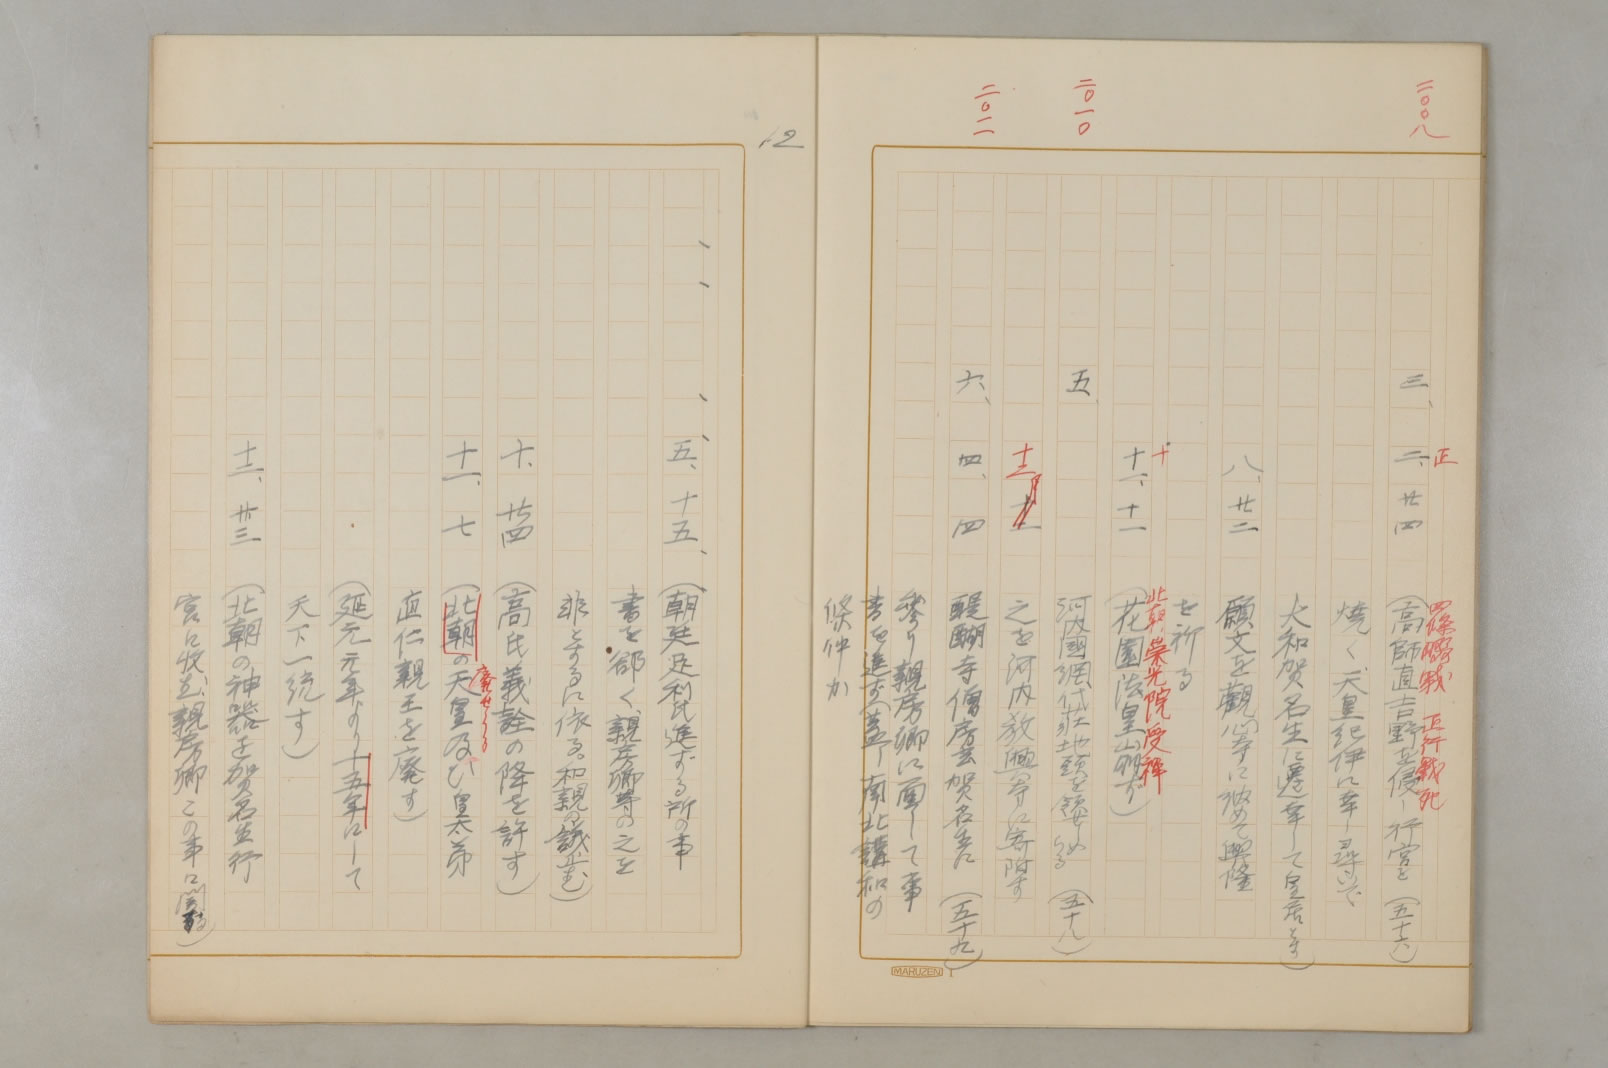 二〇〇八
正
四條畷戦 正行戦死
三、 二、 廿四 (高師直吉野を侵し行宮を (五十六)
焼く、天皇紀伊に幸し尋いで
大和賀名生に遷幸して皇居とす)
八、 廿二 願文を觀心寺に納めて興隆
を祈る
十
北朝 崇光院受禅
十一、 十一 (花園法皇崩ず)
二〇一〇
五、 河内國網代荘地頭を領せしめらる (五十八)
十二月 十二 之を河内教興寺に寄附す
二〇一一
六、 四、 四 醍醐寺僧房玄賀名生に (五十九)
参り親房卿に面して事
書を進ず、蓋し南北講和の
條件か
12
、、、、五、 十五、 (朝廷足利氏進ずる所の事
書を郤く、親房卿等の之を
非とするに依る。和親の議止む)
十、 廿四 (高氏義詮の降を許す)
十一、 七 (北朝の天皇及び皇太弟
廃せらる
直仁親王を廃す)
(延元元年より十五年にして
天下一統す)
十二、 廿三 (北朝の神器を賀名生行
宮に收む、親房卿この事に関る)
MARUZEN 1